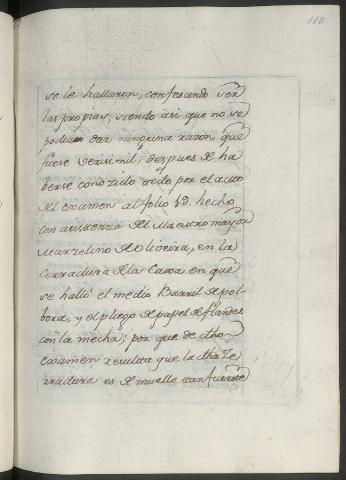 180
se le hallaron, confesando ser
las propias, siendo asi que no se
podian dar ninguna razon que
fuese verisimil, despues de ha
berse conozido todo por el acto
del examen al folio 12. hecho
con asistencia del Maestro mayor
Marzelino de Oliveira, en la
cerradura de la Caxa en que
se halló el medio Barril de pol-
bora, y el pliego de papel de flandes
con la mecha; por que de dho
examen resulta que la dha Ze
rradura es de muelle tan fuerte